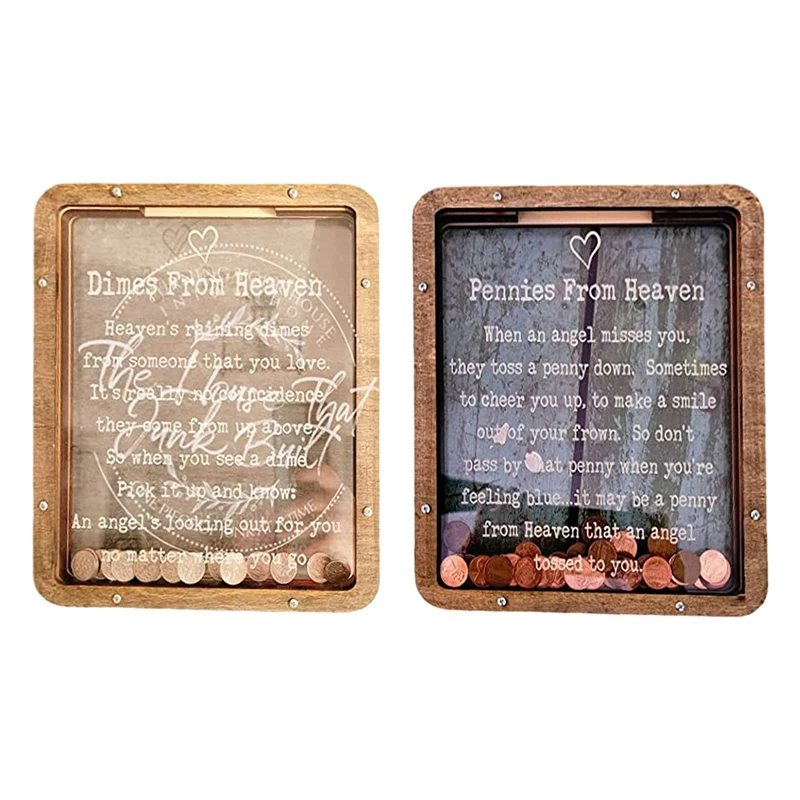 Dimes From Heaven
Heaven's raining dimes
from someone that you love.
It's really no coincidence
they come from up above.
So when you see a dime
Pick it up and know:
An angel's looking out for you
no matter where you go
The House That
Junk Built
Pennies From Heaven
When an angel misses you,
they toss a penny down. Sometimes
to cheer you up, to make a smile
out of your frown. So don't
pass by that penny when you're
feeling blue...it may be a penny
from Heaven that an angel
tossed to you.